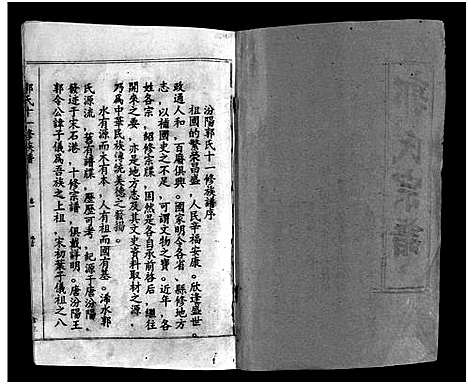 汾陽郭氏十一修族譜序
祖國的繁榮昌盛，人民幸福安康。欣逢盛世。
政通人和，百廢俱興。國家明令各省、縣修地方
志，以補國史之不足，可謂文物之寶。近年，各
姓各宗，紹修宗牒，固然是各自承前啓后，繼往
開來之要，亦是地方志及其文史資料取材之源，
乃為中華民族傳統美德之發揚。
水有源而木有本，人有祖而國有基。浠水郭
氏源流，舊有譜牒，歷歷可考，紀源于唐汾陽、
發迹于宋石港，十修宗譜，俱載詳明。唐汾陽王
郭令公諱子儀為吾族之上祖，宋初葉子儀祖之八
郭氏十一修族譜
郭氏宗譜